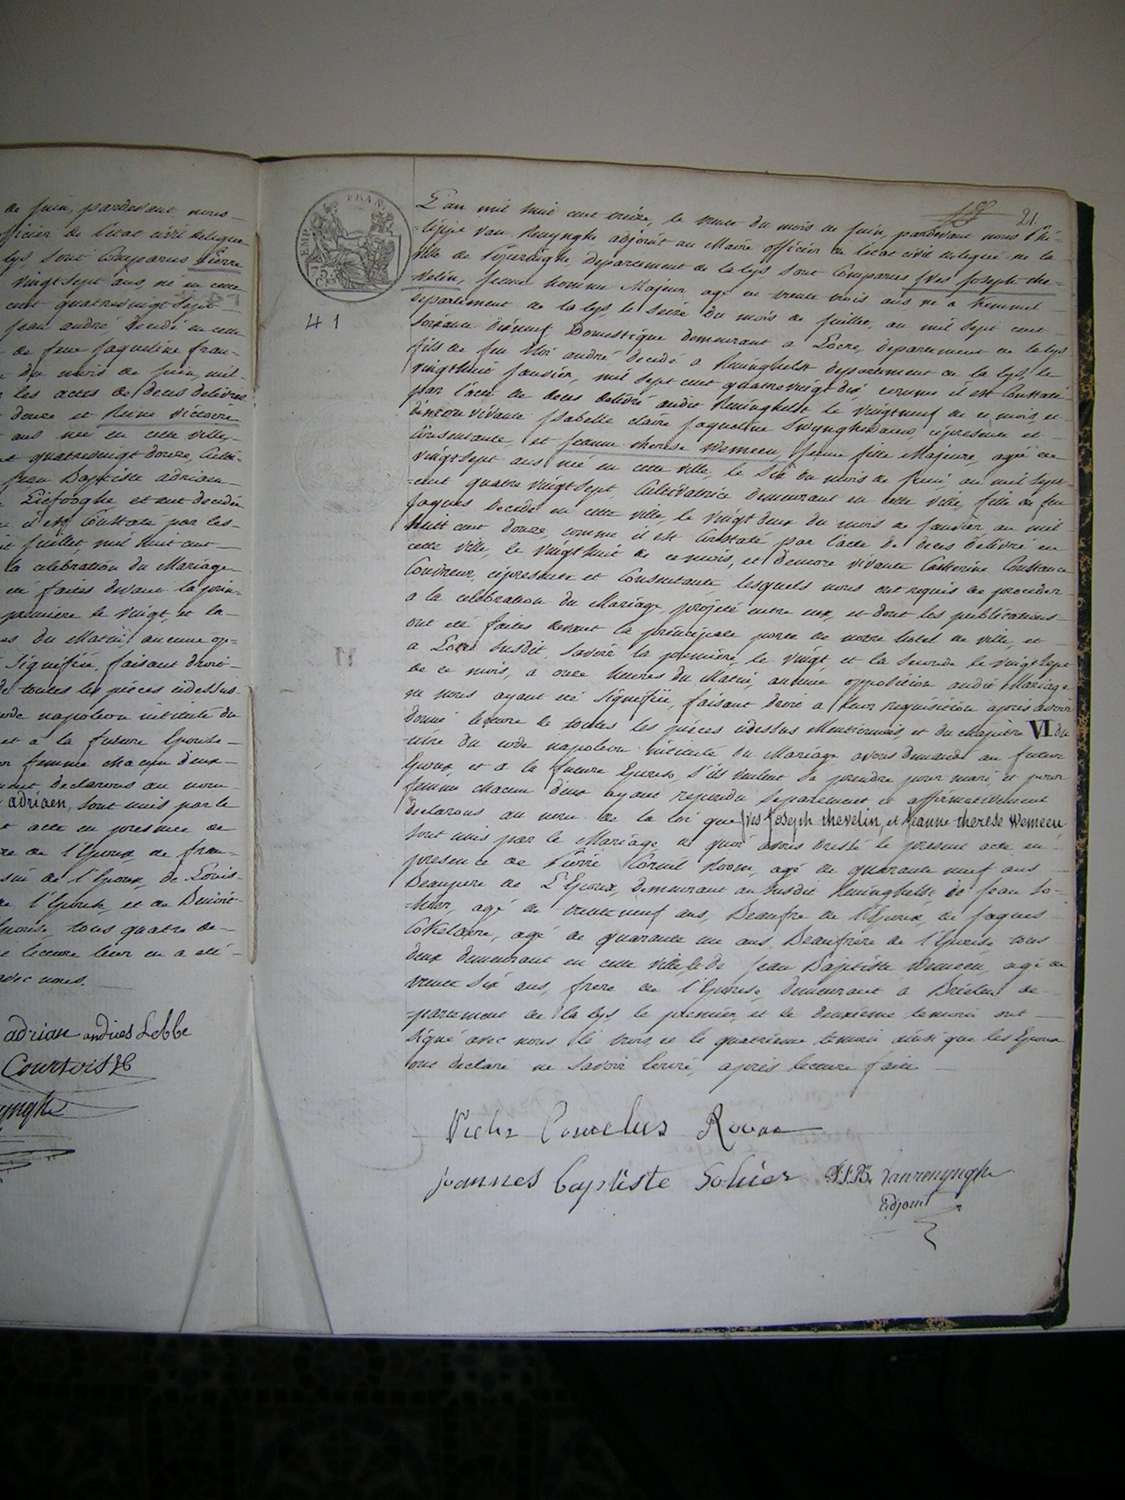 de juin, pardevant nous
officier de l'état civil delegué
lys, sont Comparus Pierre
vingtsept ans, né en cette
cent quatrevingt sept
jean andré decedé en cette
de feue jaqueline fran-
du mois de juin, mil
les actes de deces delivrés
douze et Reine victoire
ans née en cette ville,
quatrevingt douze, Culti-
jean Baptiste adriaen
Liefooghe et est decedée
il est Constaté par les
juillet, mil huit cent
la celebration du Mariage
été faites devant la prin-
premiere le vingt, et la
du Matin, aucune op-
Signifiée, faisant droit
de toutes les pièces cidessus
code napoleon intitulé du
et à la future Epouse
femme chacun d'eux
declarons au nom
adriaen, sont unis par le
acte en presence de
de l'Epoux de fran-
de l'Epoux, de Louis
de l'Epouse, et de Benoit
tous quatre de-
lecture leur en a été
avec nous.
adrian andries Lebbe
Courtois
21.
EMP. FRAN.
75 C.
41
L'an mil huit cent treize, le trente du mois de juin, pardevant nous Phi-
-lippe van Renynghe adjoint au Maire officier de l'état civil delegué de la
ville de Poperinghe departement de la lys sont Comparus Yves Joseph che-
velin, jeune homme Majeur agé de trente trois ans, né a Kemmel
departement de la lys, le seize du mois de juillet, an mil sept cent
soixante dixneuf, Domestique demeurant a Locre, departement de la lys
fils de feu Eloi andré decedé a Reninghelst departement de la lys, le
vingthuit janvier, mil sept cent quatrevingt dix comme il est Constaté
par l'acte de deces delivré audit Reninghelst le vingtneuf de ce mois, et
d'encore vivante Isabelle claire jaqueline Swynghedauw, cipresente et
Consentante, et jeanne therese Wemeeu, jeune fille Majeure, agée de
vingtsept ans née en cette ville, le Six du mois de juin, an mil sept
cent quatre vingtsept, Cultivatrice demeurant en cette ville, fille de feu
jaques decedé en cette ville, le vingt deux du mois de janvier an mil
huit cent douze, comme il est Constaté par l'acte de deces delivré en
cette ville, le vingt huit de ce mois, et d'encore vivante Catherine Constance
Coudreur, cipresente et Consentante lesquels nous ont requis de proceder
a la celebration du Mariage projeté entre eux, et dont les publications
ont été faites devant la principale porte de notre hotel de ville, et
a Locre susdit, Savoir la premiere, le vingt, et la seconde le vingtsept
de ce mois, a onze heures du Matin, aucune opposition audit Mariage
ne nous ayant été Signifiée, faisant droit a leur requisition après avoir
donné lecture de toutes les pièces cidessus Mentionnées et du chapitre VI du
titre du code napoleon intitulé du Mariage avons demandé au futur
Epoux et a la future Epouse, S'ils veulent se prendre pour mari et pour
femme chacun d'eux ayant repondu separement et affirmativement
declarons au nom de la loi que Yves Joseph chevelin, et jeanne therese Wemeeu
sont unis par le Mariage, de quoi avons dressé le present acte en
presence de Pierre Corneil Roose, agé de quarante neuf ans
Beaupere de L'Epoux, demeurant au susdit Reninghelst, de jean So-
-hier, agé de trente neuf ans, Beaufre de l'Epoux, de jaques
Cokelaere, agé de quarante un ans, Beaufrere de l'Epouse tous
deux demeurant en cette ville, & de jean Baptiste Wemeeu, agé de
trente Six ans, frere de l'Epouse, demeurant a Brielen de-
-partement de la lys le premier, et le deuxieme temoin ont
signé avec nous le trois, et le quatrieme temoin ainsi que les Epoux
ont declaré ne savoir Ecrire, après lecture faite
Cornelus
joannes baptiste Sohier P.J.B. Vanrenynghe
adjoint